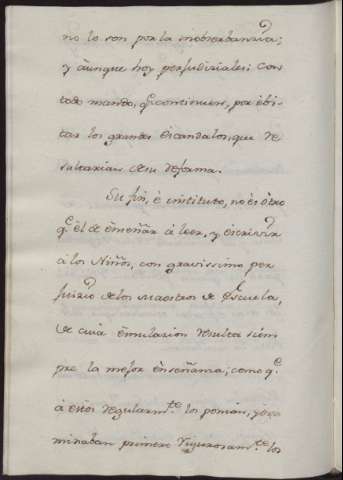 no lo son por la inobserbanzia;
y áunque hoy perjudiciales: con
todo mando, q.e continuen, por ebi-
tar los grandes escandalos, que re
sultarian de su reforma.
Su fin, é instituto, no és ótro
q.e él de énseñar á leer, y escrivir
á los Niños, con gravissimo per
juizio de los Maestros de Escuela,
de cuia émulazion resulta siem
pre la mejor énseñanza; como q.e
á estos regularm.te los ponian, y éxa
minaban primero rigurosam.te los